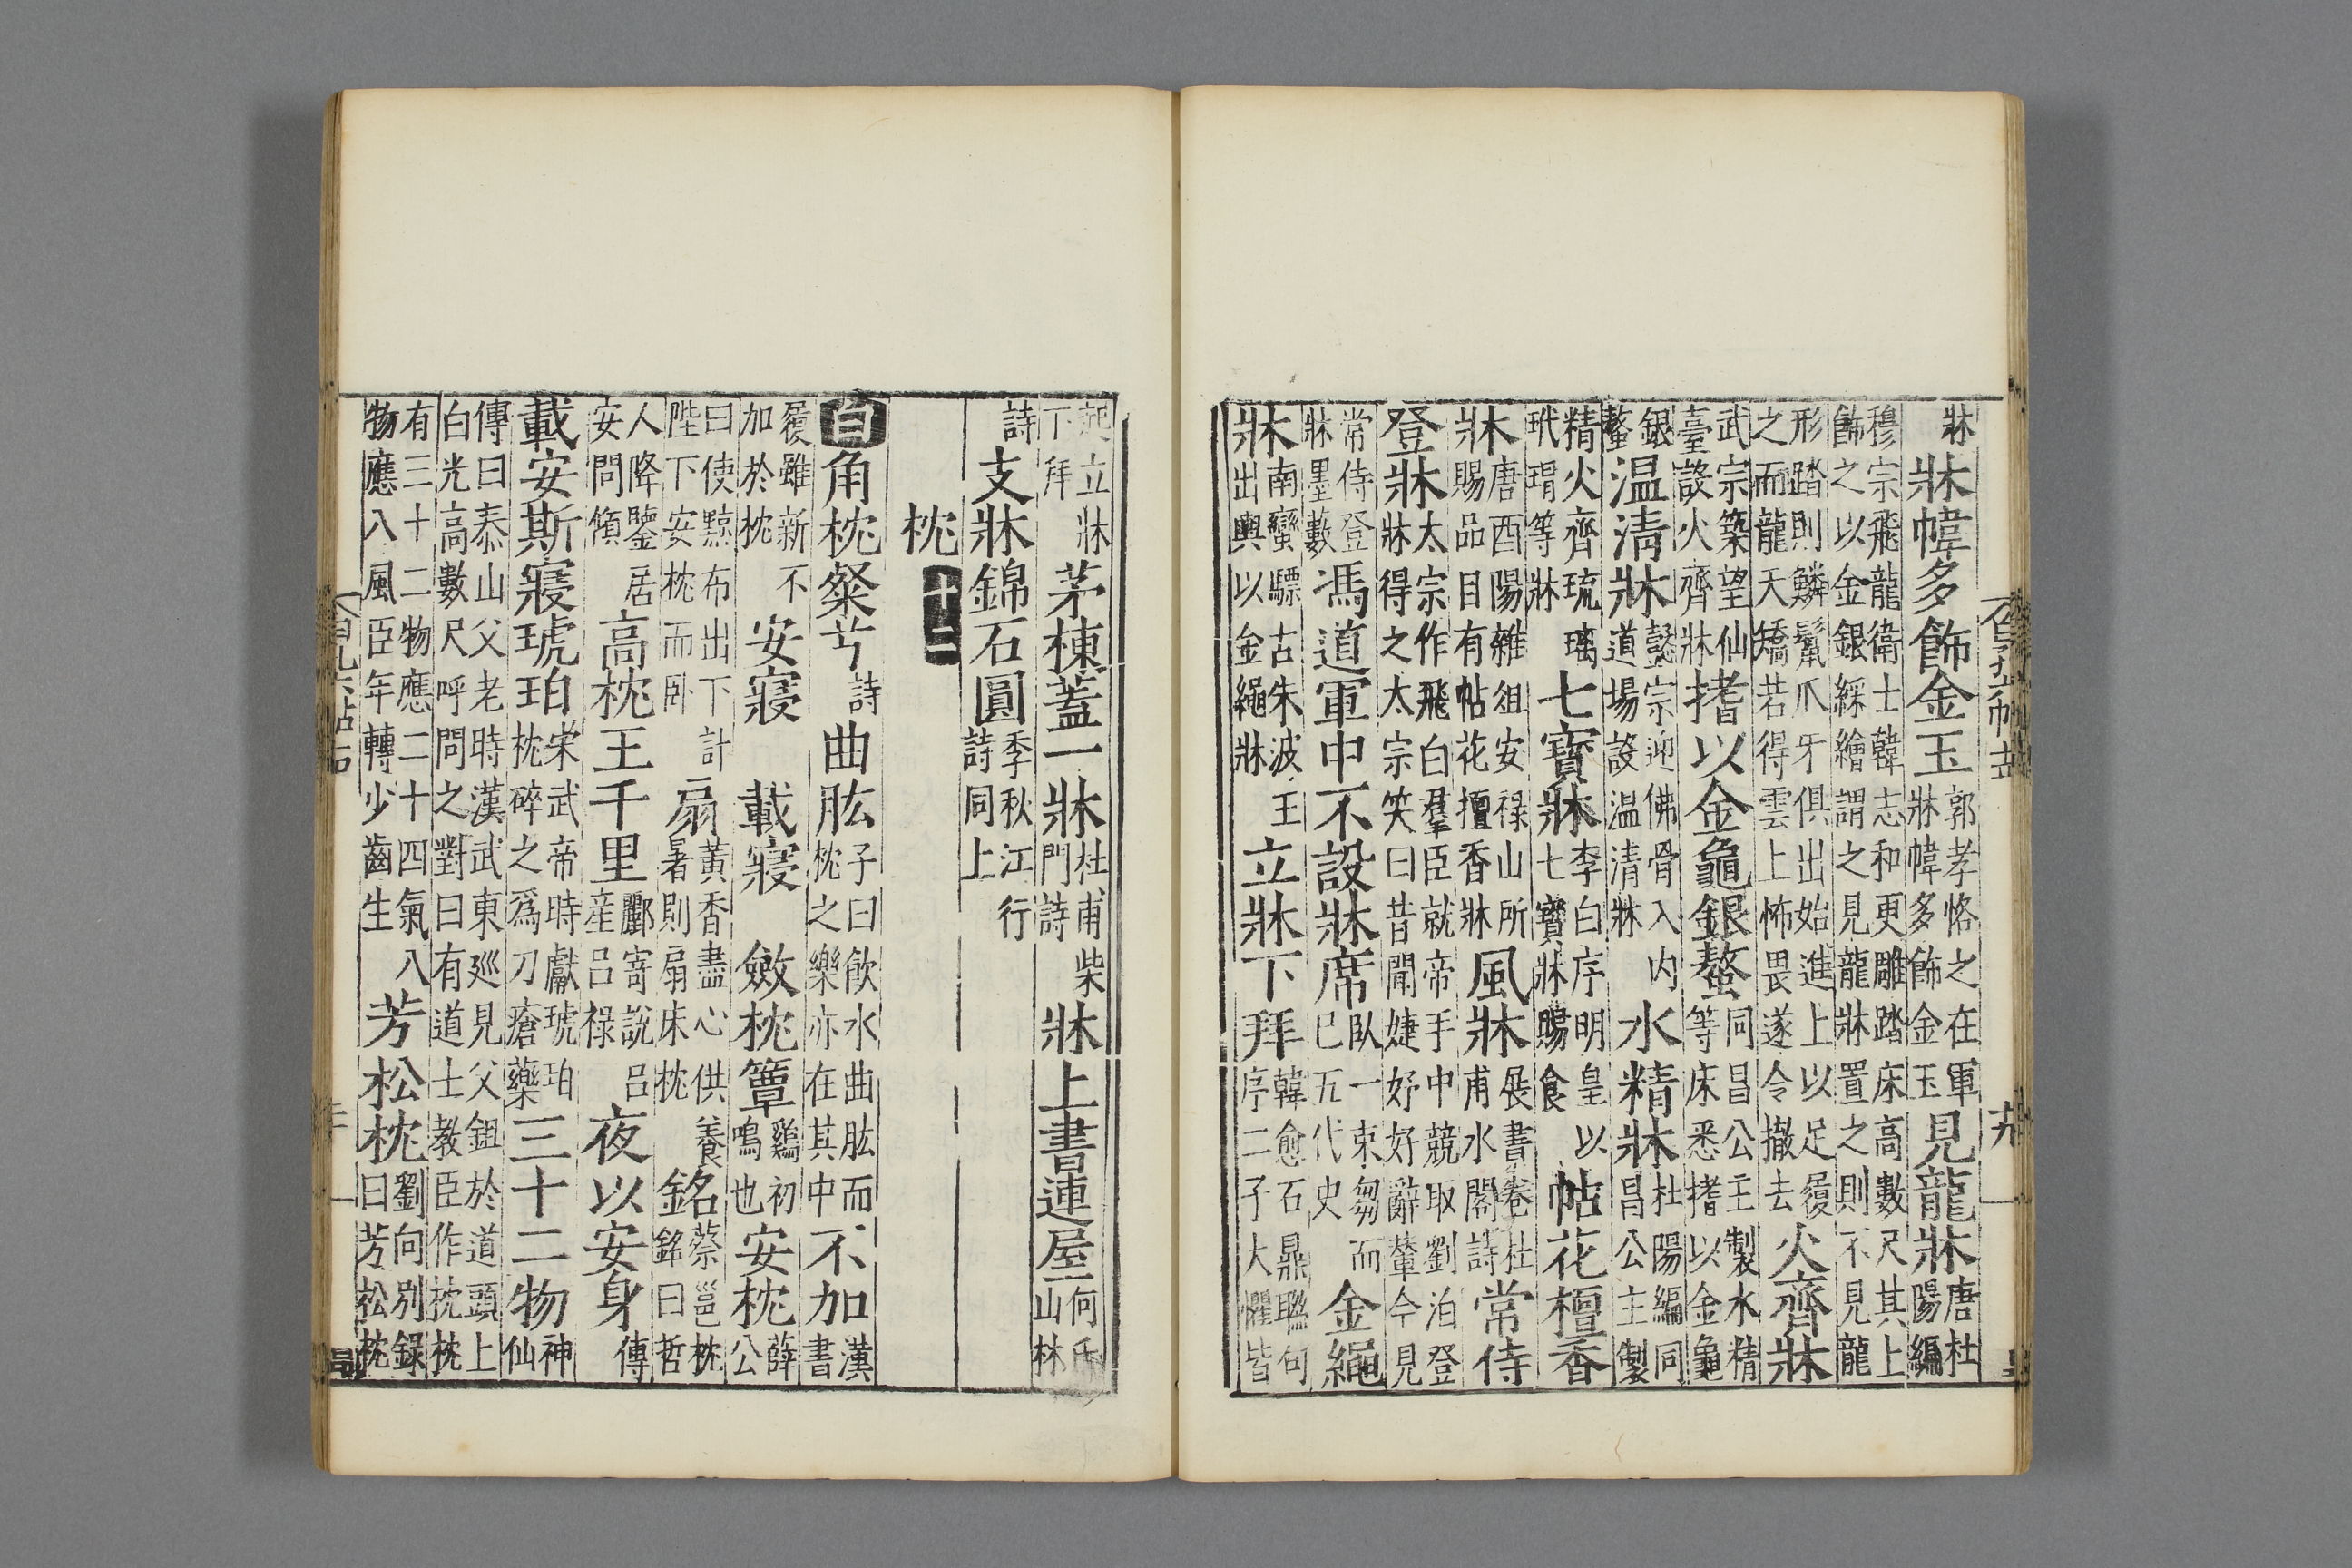 牀牀幃多飾金玉郭孝恪之在軍牀幃多飾金玉見龍牀唐杜陽編
穆宗飛龍衛士韓志和更雕踏床高數尺其上飾之以金銀綵繪謂之見龍牀置之則不見龍
形踏則鱗鬣爪牙俱出始進上以足履之而龍夭矯若得雲上怖畏遂令撤去火齊牀
武宗築望仙臺設火齊牀揩以金龜銀螯同昌公主製水精等床悉揩以金龜
銀螯温清牀懿宗迎佛骨入内道場設温清牀水精牀杜陽編同昌公主製
精火齊琉璃玳瑁等牀七寶牀李白序明皇以七寶牀賜食帖花檀香
牀唐酉陽雜俎安禄山所賜品目有帖花檀香牀風牀展書卷杜甫水閣詩常侍
登牀太宗作飛白羣臣就帝手中競取劉洎登牀得之太宗笑曰昔聞婕妤好辭輦今見
常侍登牀墨藪馮道軍中不設牀席臥一束芻而已五代史金繩
牀南蠻驃古朱波王出輿以金繩牀立牀下拜韓愈石鼎聯句序二子大懼皆
起立牀下拜茅棟蓋一牀杜甫柴門詩牀上書連屋何氏山林
詩支牀錦石圓季秋江行詩同上
枕十二
自角枕粲兮詩曲肱子曰飲水曲肱而枕之樂亦在其中不加漢書
履雖新不加於枕安寢載寢斂枕簟鷄初鳴也安枕薛公
曰使黥布出下計陛下安枕而卧扇黄香盡心供養暑則扇床枕銘蔡邕枕銘曰哲
人降鑒居安問傾高枕王千里酈寄說吕産吕禄夜以安身傳
載安斯寢琥珀宋武帝時獻琥珀枕碎之爲刀瘡藥三十二物神仙
傳曰泰山父老時漢武東廵見父鉏於道頭上白光高數尺呼問之對曰有道士教臣作枕枕
有三十二物應二十四氣八物應八風臣年轉少齒生芳松枕劉向別録曰芳松枕